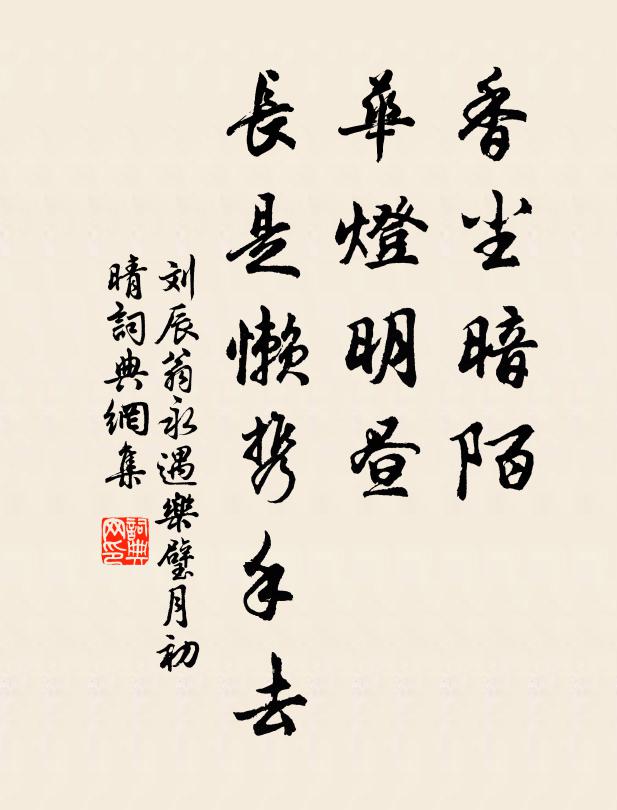 香尘暗陌
華燈明昼
長是懶携手去
刘辰翁永遇樂璧月初
晴詞典網集
詞典网印